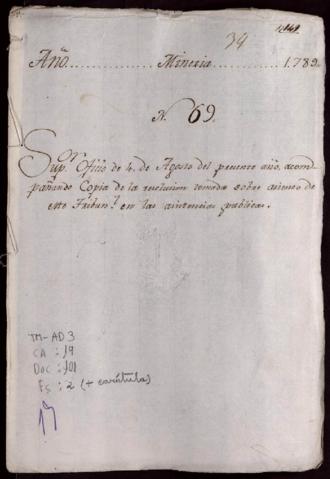 34
Año. Mineria 1789.
N. 69.
Sup.or Oficio de 4. de Agosto del presente año, acom-
pañando Copia de la resolucion tomada sobre asiento de
este Tribun.l en las asistencias publicas.
TM-AD3
CA : 19
Doc : 101
Fs : 2 (+ carátula)